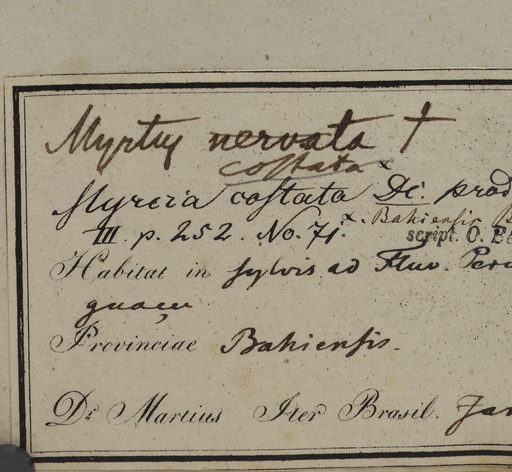 Myrtus nervata †
costata x
Myrcia costata DC. prod
III. p. 252. No. 71. x. Bahiensis
script. O. Be
Habitat in sylvis ad Fluv. Peru
guaçu
Provinciae Bahiensis.
Dr. Martius Iter Brasil. Jan